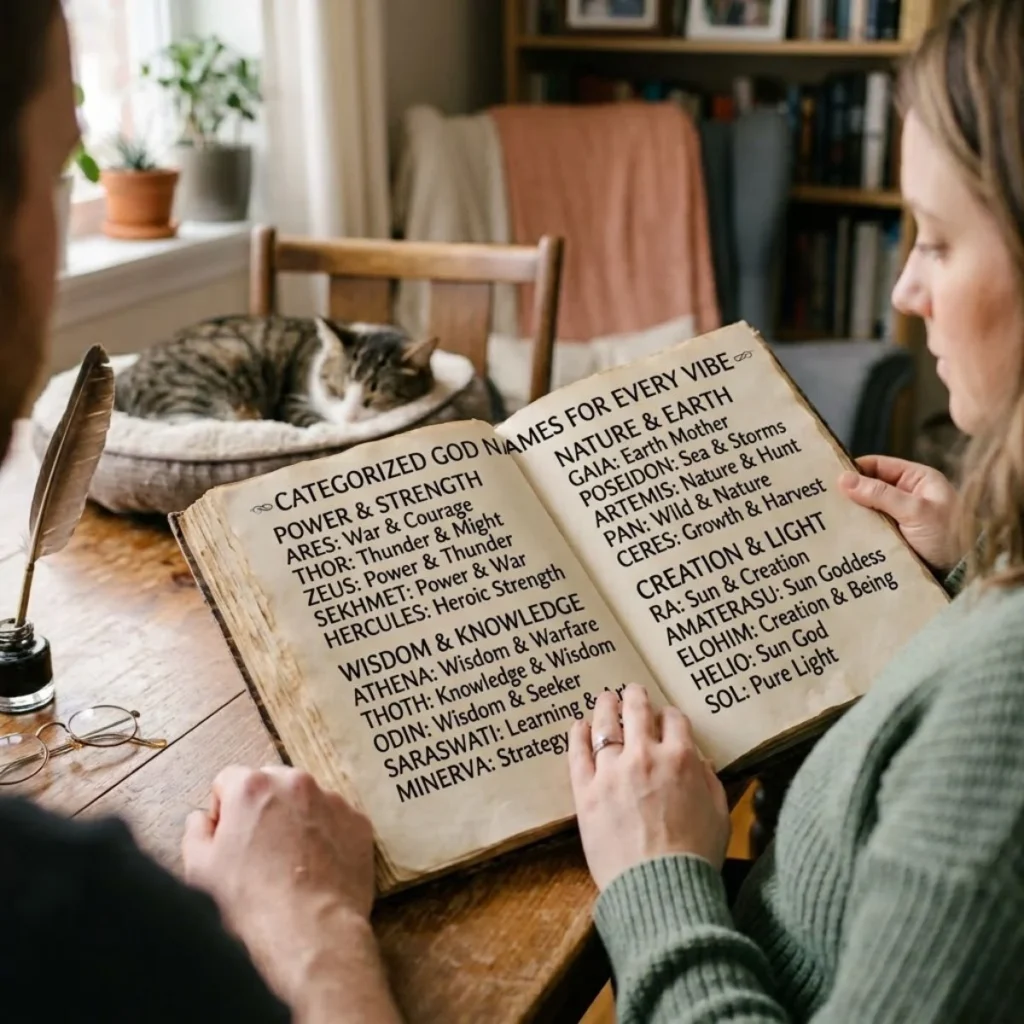 CATEGORIZED GOD NAMES FOR EVERY VIBE
POWER & STRENGTH
ARES: War & Courage
THOR: Thunder & Might
ZEUS: Power & Thunder
SEKHMET: Power & War
HERCULES: Heroic Strength
WISDOM & KNOWLEDGE
ATHENA: Wisdom & Warfare
THOTH: Knowledge & Wisdom
ODIN: Wisdom & Seeker
SARASWATI: Learning &
MINERVA: Strategy
NATURE & EARTH
GAIA: Earth Mother
POSEIDON: Sea & Storms
ARTEMIS: Nature & Hunt
PAN: Wild & Nature
CERES: Growth & Harvest
CREATION & LIGHT
RA: Sun & Creation
AMATERASU: Sun Goddess
ELOHIM: Creation & Being
HELIO: Sun God
SOL: Pure Light